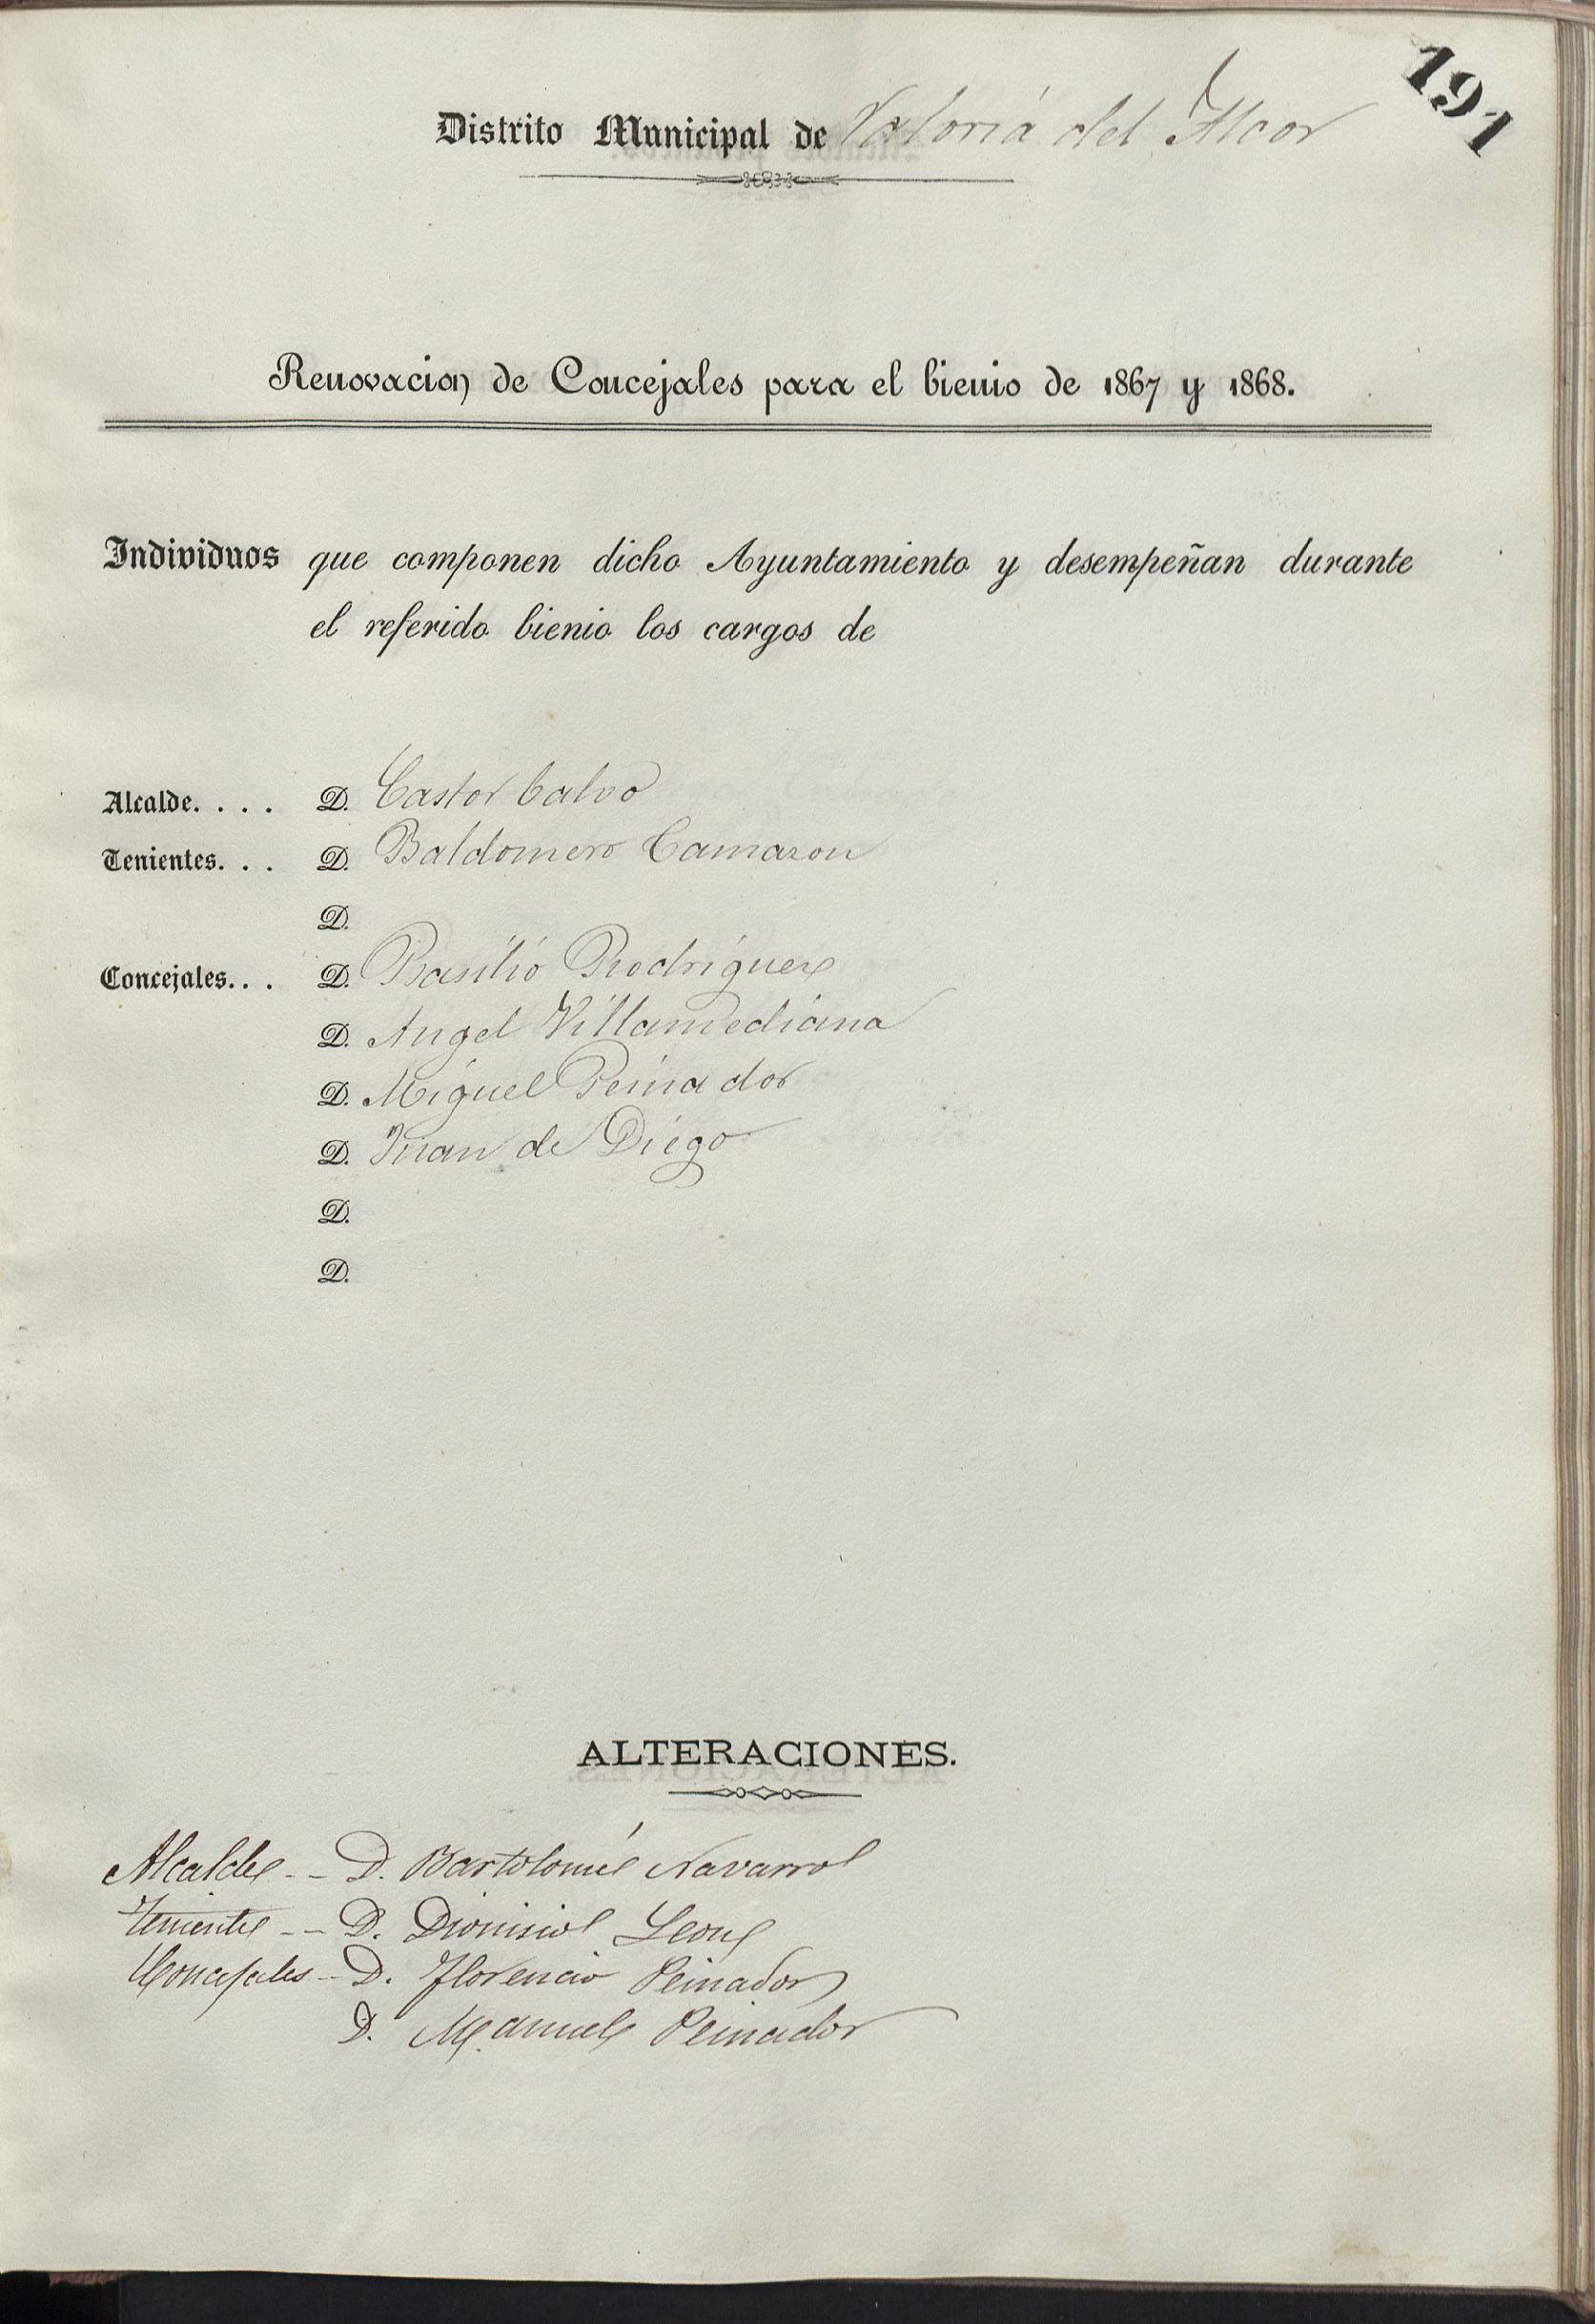 191
Distrito Municipal de Valoria del Alcor
Renovacion de Concejales para el bienio de 1867 y 1868.
Individuos que componen dicho Ayuntamiento y desempeñan durante
el referido bienio los cargos de
Alcalde. . . . D. Castor Calvo
Tenientes. . . D. Baldomero Camazon
D.
Concejales. . . D. Basilio Rodriguez
D. Angel Villamediana
D. Miguel Peinador
D. Juan de Diego
D.
D.
ALTERACIONES.
Alcalde -- D. Bartolomé Navarro
Teniente -- D. Dionisio Leon
Concejales - D. Florencio Peinador
D. Manuel Peinador